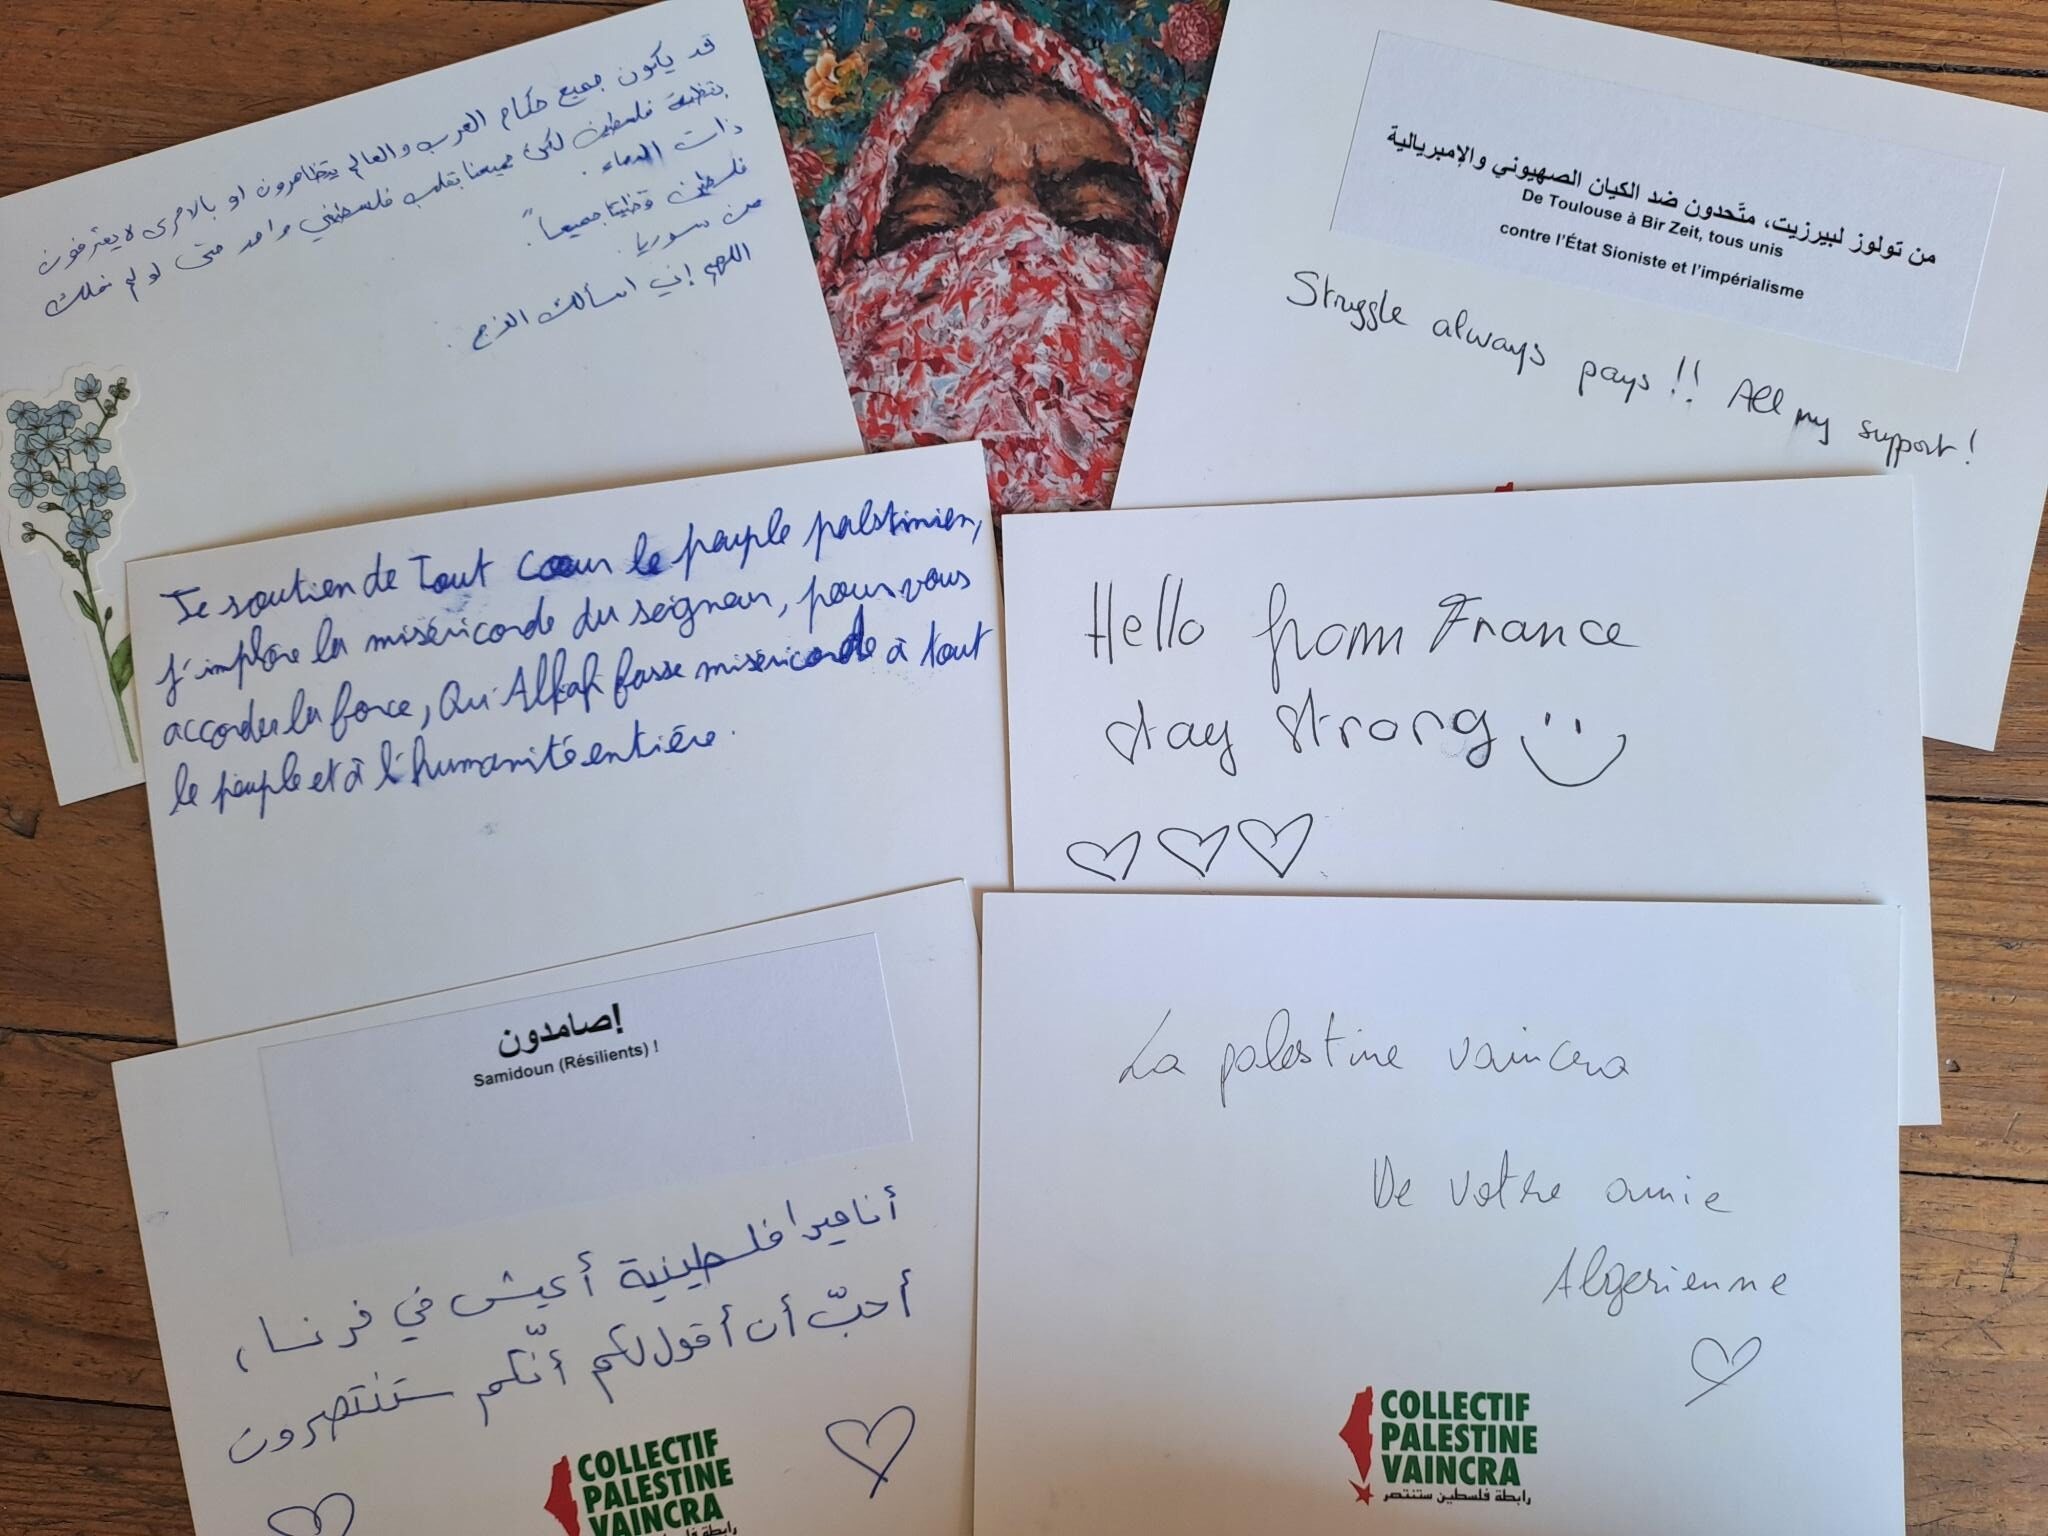 قد يكون جميع حكام العرب والعالم يتظاهرون او بالاحرى لا يعترفون
بقضية فلسطين لكن جميعنا بقلب فلسطيني واحد حتى لو لم نملك
ذات الدماء.
فلسطين وطننا جميعاً".
من سوريا.
اللهم إني اسألك الفرج.
من تولوز لبيرزيت، متّحدون ضد الكيان الصهيوني والإمبريالية
De Toulouse à Bir Zeit, tous unis
contre l'État Sioniste et l'impérialisme
Struggle always pays !! All my support !
Je soutien de tout cœur le peuple palstinien,
j'implore la miséricorde du seigneur, pour vous
accorder la force, Qu'Allah fasse miséricorde à tout
le peuple et à l'humanité entière.
Hello from France
stay strong
إصامدون
Samidoun (Résilients) !
أنا ميرا فلسطينية أعيش في فرنسا،
أحبّ أن أقول لكم أنّكم ستنتصرون
COLLECTIF
PALESTINE
VAINCRA
La palestine vaincra
De votre amie
Algerienne
COLLECTIF
PALESTINE
VAINCRA
رابطة فلسطين ستنتصر